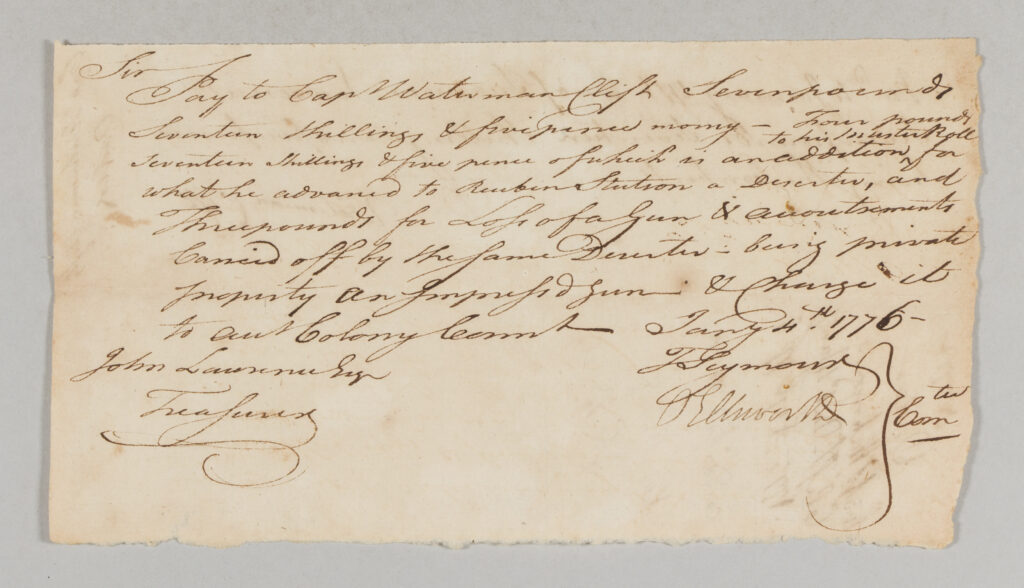 Sir
Pay to Capt Waterman Clift Seven pounds
Seventeen Shillings & five pence money – Four pounds
to his Muster Roll
Seventeen Shillings & five pence of which is an addition ^ for
what he advanced to Reuben Stutson a Deserter, and
Three pounds for Loss of a Gun & accoutrements
Carried off by the Same Deserter – being private
property an Impressd Gun & Charge it
to act Colony Connt Jany 4th. 1776 –
John Lawrence Esqr T Seymour
Treasurer Ellsworth
Comtee